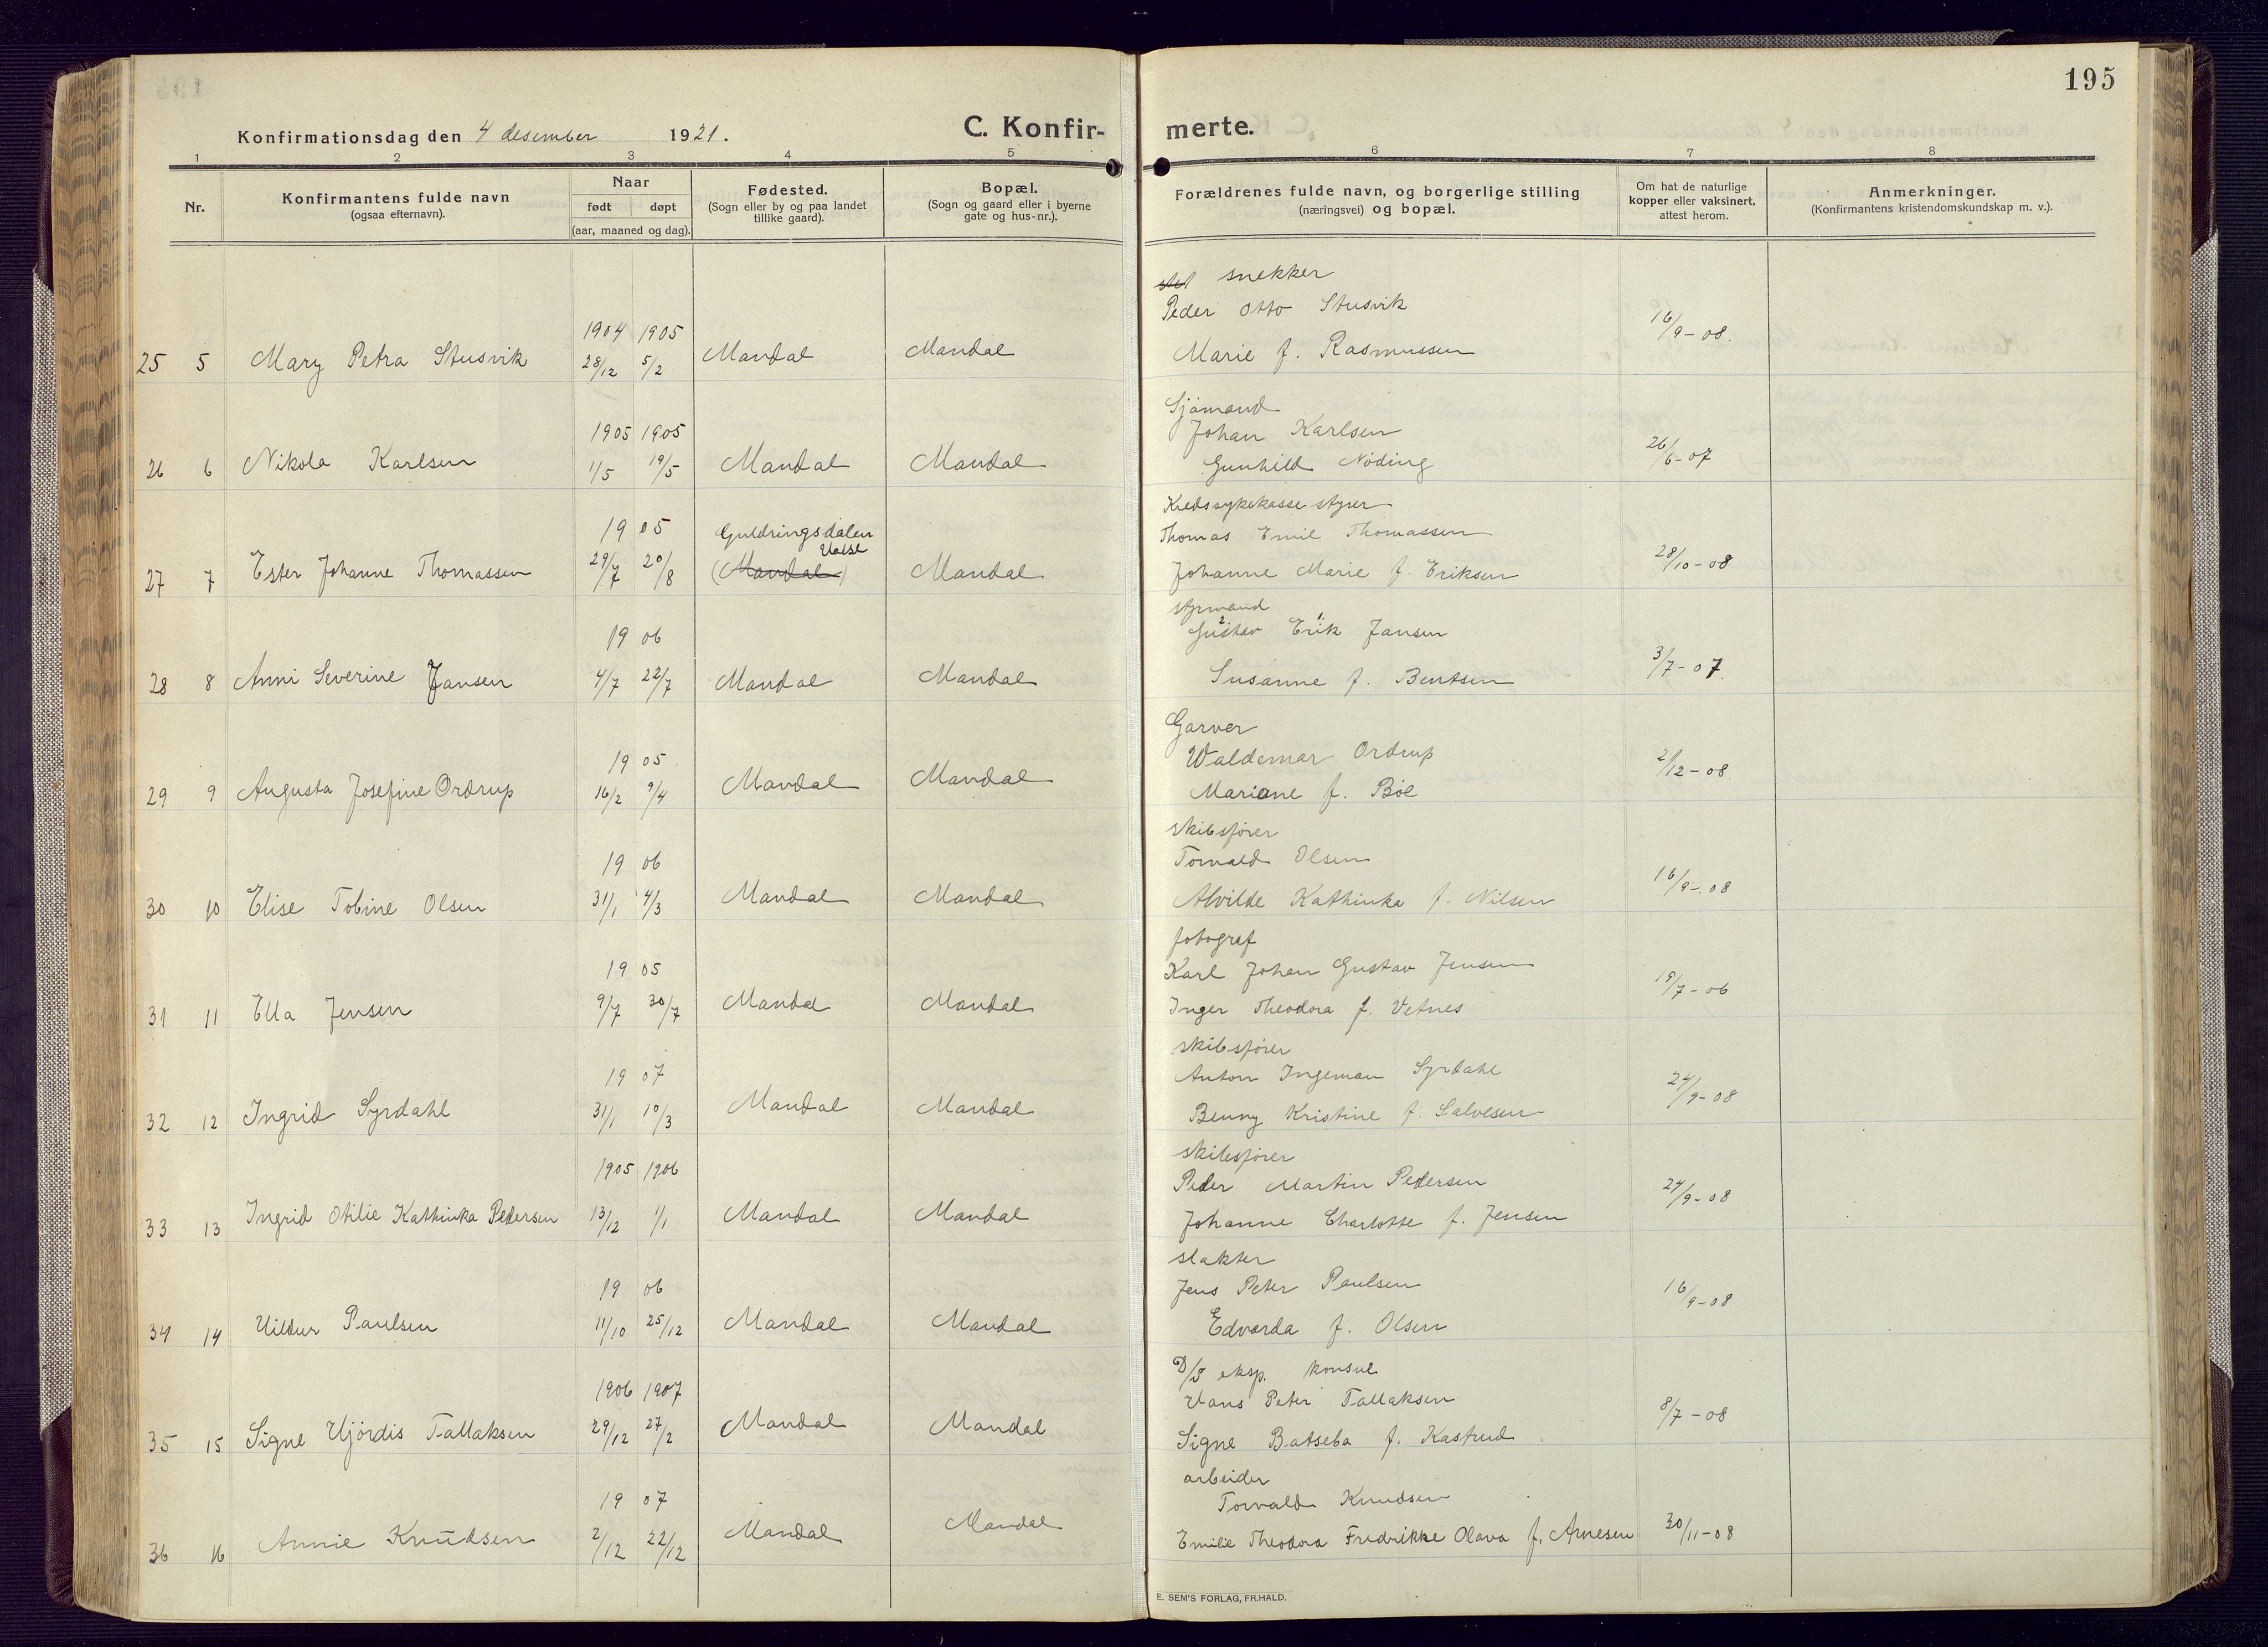 195
Konfirmationsdag den 4 desember 1921.
C. Konfir-
merte.
1 2 3 4 5 6 7 8
Nr.
Konfirmantens fulde navn
(ogsaa efternavn).
Naar
født døpt
(aar, maaned og dag).
Fødested.
(Sogn eller by og paa landet
tillike gaard).
Bopæl.
(Sogn og gaard eller i byerne
gate og hus-nr.).
Forældrenes fulde navn, og borgerlige stilling
(næringsvei) og bopæl.
Om hat de naturlige
kopper eller vaksinert,
attest herom.
Anmerkninger.
(Konfirmantens kristendomskundskap m. v.).
snekker
Peder Otto Stusvik
1904 1905
25 5 Mary Petra Stusvik 28/12 5/2 Mandal Mandal Marie f. Rasmussen 16/9-08.
Sjømand
1905 1905 Johan Karlsen
26 6 Nikola Karlsen 1/5 19/5 Mandal Mandal Gunhild Nøding 26/6-07
Kredssykekasse styrer
19 05 Guldringsdalen Thomas Emil Thomassen
27 7 Ester Johanne Thomassen 29/7 20/8 (Mandal) Mandal Johanne Marie f. Eriksen 28/10-08
styrmand
19 06 Gustav 2. Erik 1. Jansen
28 8 Anni Severine Jansen 4/7 22/7 Mandal Mandal Susanne f. Bentsen 3/7-07.
Garver
19 05 Waldemar Ordrup
29 9 Augusta Josefine Ordrup 16/2 9/4 Mandal Mandal Mariane f. Bøe 2/12-08.
skibsfører
19 06 Torvald Olsen
30 10 Elise Tobine Olsen 31/1 4/3 Mandal Mandal Alvilde Kathinka f. Nilsen 16/9-08
fotograf
19 05 Karl Johan Gustav Jensen
31 11 Ella Jensen 9/7 30/7 Mandal Mandal Inger Theodora f. Vetnes 19/7-06
skibsfører
19 07 Anton Ingeman Syrdahl
32 12 Ingrid Syrdahl 31/1 10/3 Mandal Mandal Benny Kristine f. Salvesen 24/9-08
skibsfører
1905 1906 Peder Martin Pedersen
33 13 Ingrid Otilie Kathinka Pedersen 13/12 1/1 Mandal Mandal Johanne Charlotte f. Jensen 24/9-08
slakter
19 06 Jens Peter Paulsen
34 14 Hildur Paulsen 11/10 25/12 Mandal Mandal Edvarda f. Olsen 16/9-08
D/S eksp. konsul
1906 1907 Hans Peter Tallaksen
35 15 Signe Hjördis Tallaksen 29/12 27/2 Mandal Mandal Signe Batseba f. Kastrud 8/7-08
arbeider
19 07 Torvald Knudsen
36 16 Annie Knudsen 2/12 22/12 Mandal Mandal Emilie Theodora Fredrikke Olava f. Arnesen 30/11-08
E. SEM'S FORLAG, FR.HALD.